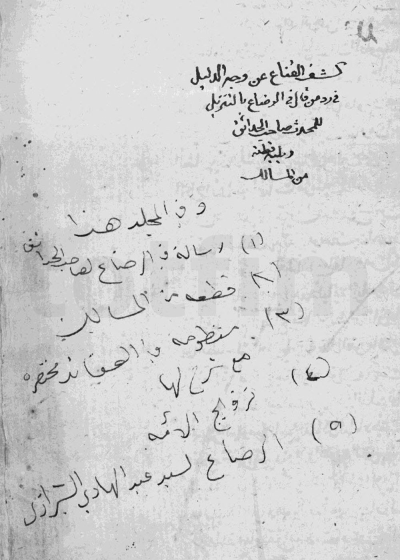 كشف القناع عن وجه الدليل
في رد من قال في الرضاع بالتنزيل
للمحدث صاحب الحدائق
ويليه قطعة
من المسالك
وفي المجلد هذا
(١) رسالة في الرضاع لصاحب الحدائق
(٢) قطعه من المسالك
(٣) منظومه في العقائد مختصره
مع شرح لها
(٤) تزويج الأمه
(٥) الرضاع لسيد عبد الهادي الشيرازي